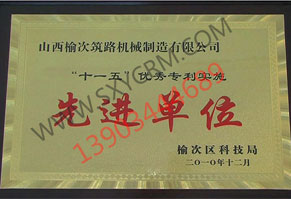 山西榆次筑路机械制造有限公司
“十一五”优秀专利实施
先进单位
榆次区科技局
二〇一〇年十二月
WWW.SXYCRM.COM
13903444689